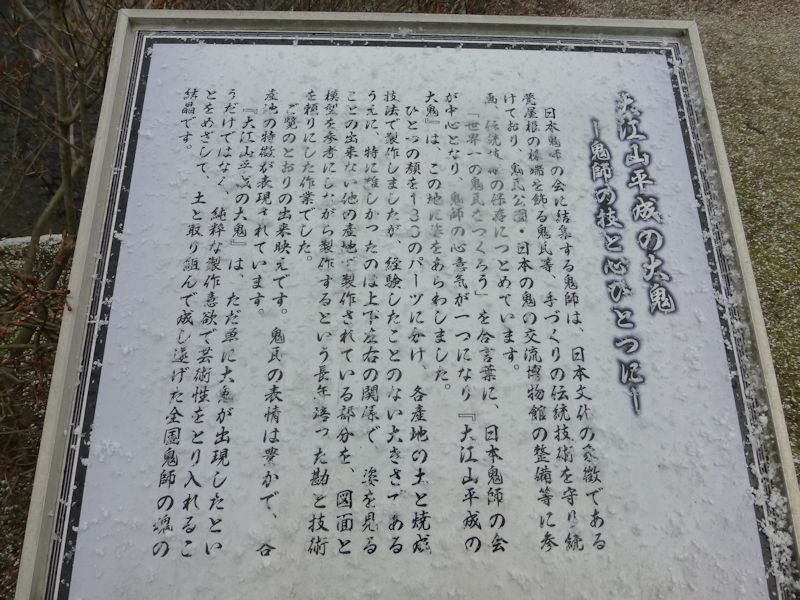 大江山平成の大鬼
―鬼師の技と心ひとつに―
日本鬼師の会に結集する鬼師は、日本文化の象徴である
甍屋根の棟端を飾る鬼瓦等、手づくりの伝統技術を守り続
けており、鬼瓦公園・日本の鬼の交流博物館の整備等に参
画、伝統技術の保存につとめています。
「世界一の鬼瓦をつくろう」を合言葉に、日本鬼師の会
が中心となり、鬼師の心意気が一つになり『大江山平成の
大鬼』は、この地に姿をあらわしました。
ひとつの顔を130のパーツにかけ、各産地の土と焼成
技法で製作しましたが、経験したことのない大きさである
うえに、特に難しかったのは上下左右の関係で、姿を見る
ことの出来ない他の産地で製作されている部分を、図面と
模型を参考にしながら製作するという長年培った勘と技術
を頼りにした作業でした。
ご覧のとおりの出来映えです。鬼瓦の表情は豊かで、各
産地の特徴が表現されています。
『大江山平成の大鬼』は、ただ単に大鬼が出現したとい
うだけではなく、純粋な製作意欲で芸術性をとり入れるこ
とをめざして、土と取り組んで成し遂げた全国鬼師の魂の
結晶です。